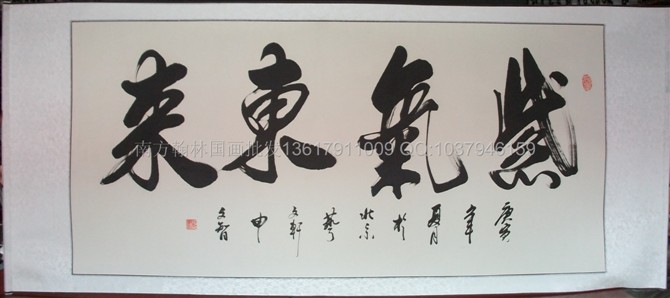 紫氣東来
庚寅年夏月於北京藝文軒申文智
南方翰林国画批发13617911009 QQ:1037946159